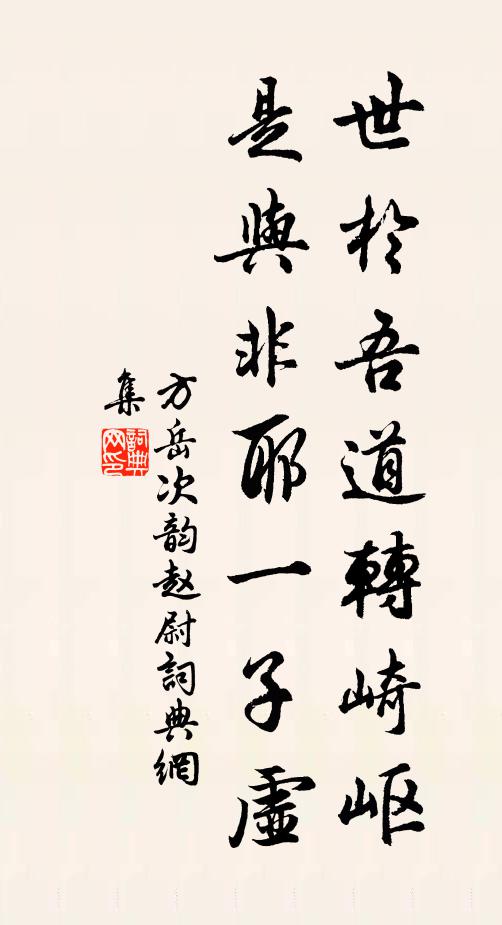 世於吾道轉崎岖
是與非耶一子虛
方岳次韵赵尉詞典網
集
詞典
网印